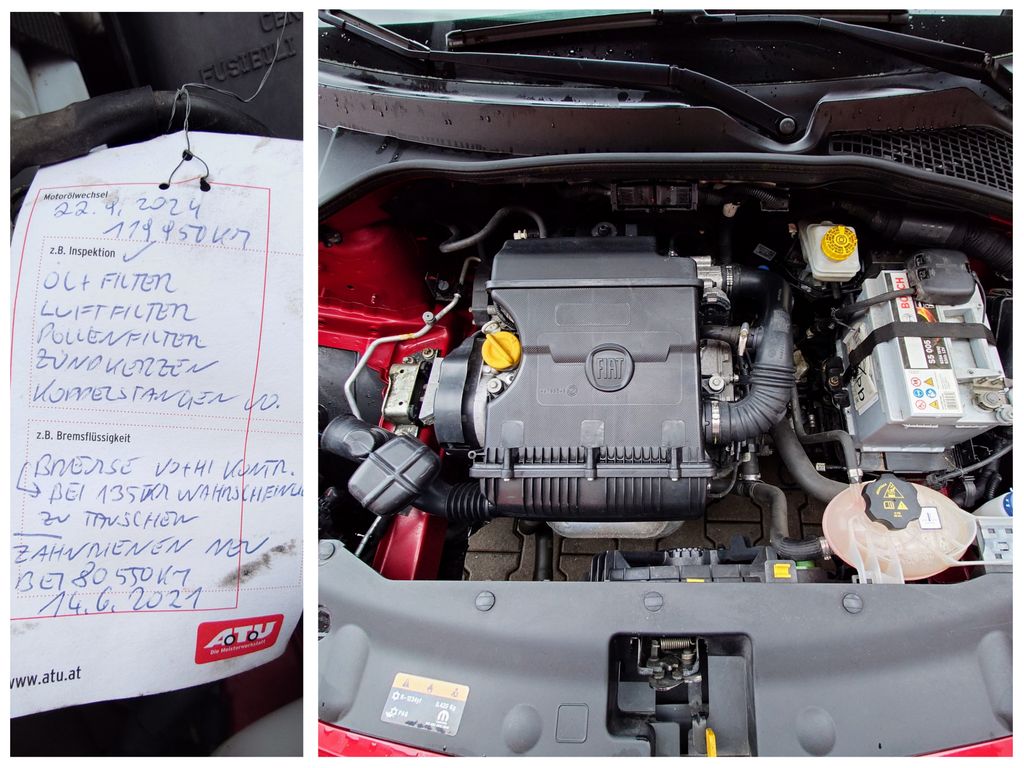 FUSIBILI
Motorölwechsel
22.4.2024
119950 KM
z.B. Inspektion ✓
ÖL + FILTER
LUFTFILTER
POLLENFILTER
ZÜNDKERZEN
KOPPELSTANGEN VO.
z.B. Bremsflüssigkeit
BREMSE VO+HI KONTR.
→ BEI 135TKM
ZU TAUSCHEN
ZAHNRIEMEN NEU
BEI 80550 KM
14.6.2021
ATU
Die Meisterwerkstatt
www.atu.at
FIAT
BOSCH
S5 005
R-1234yf
PAG